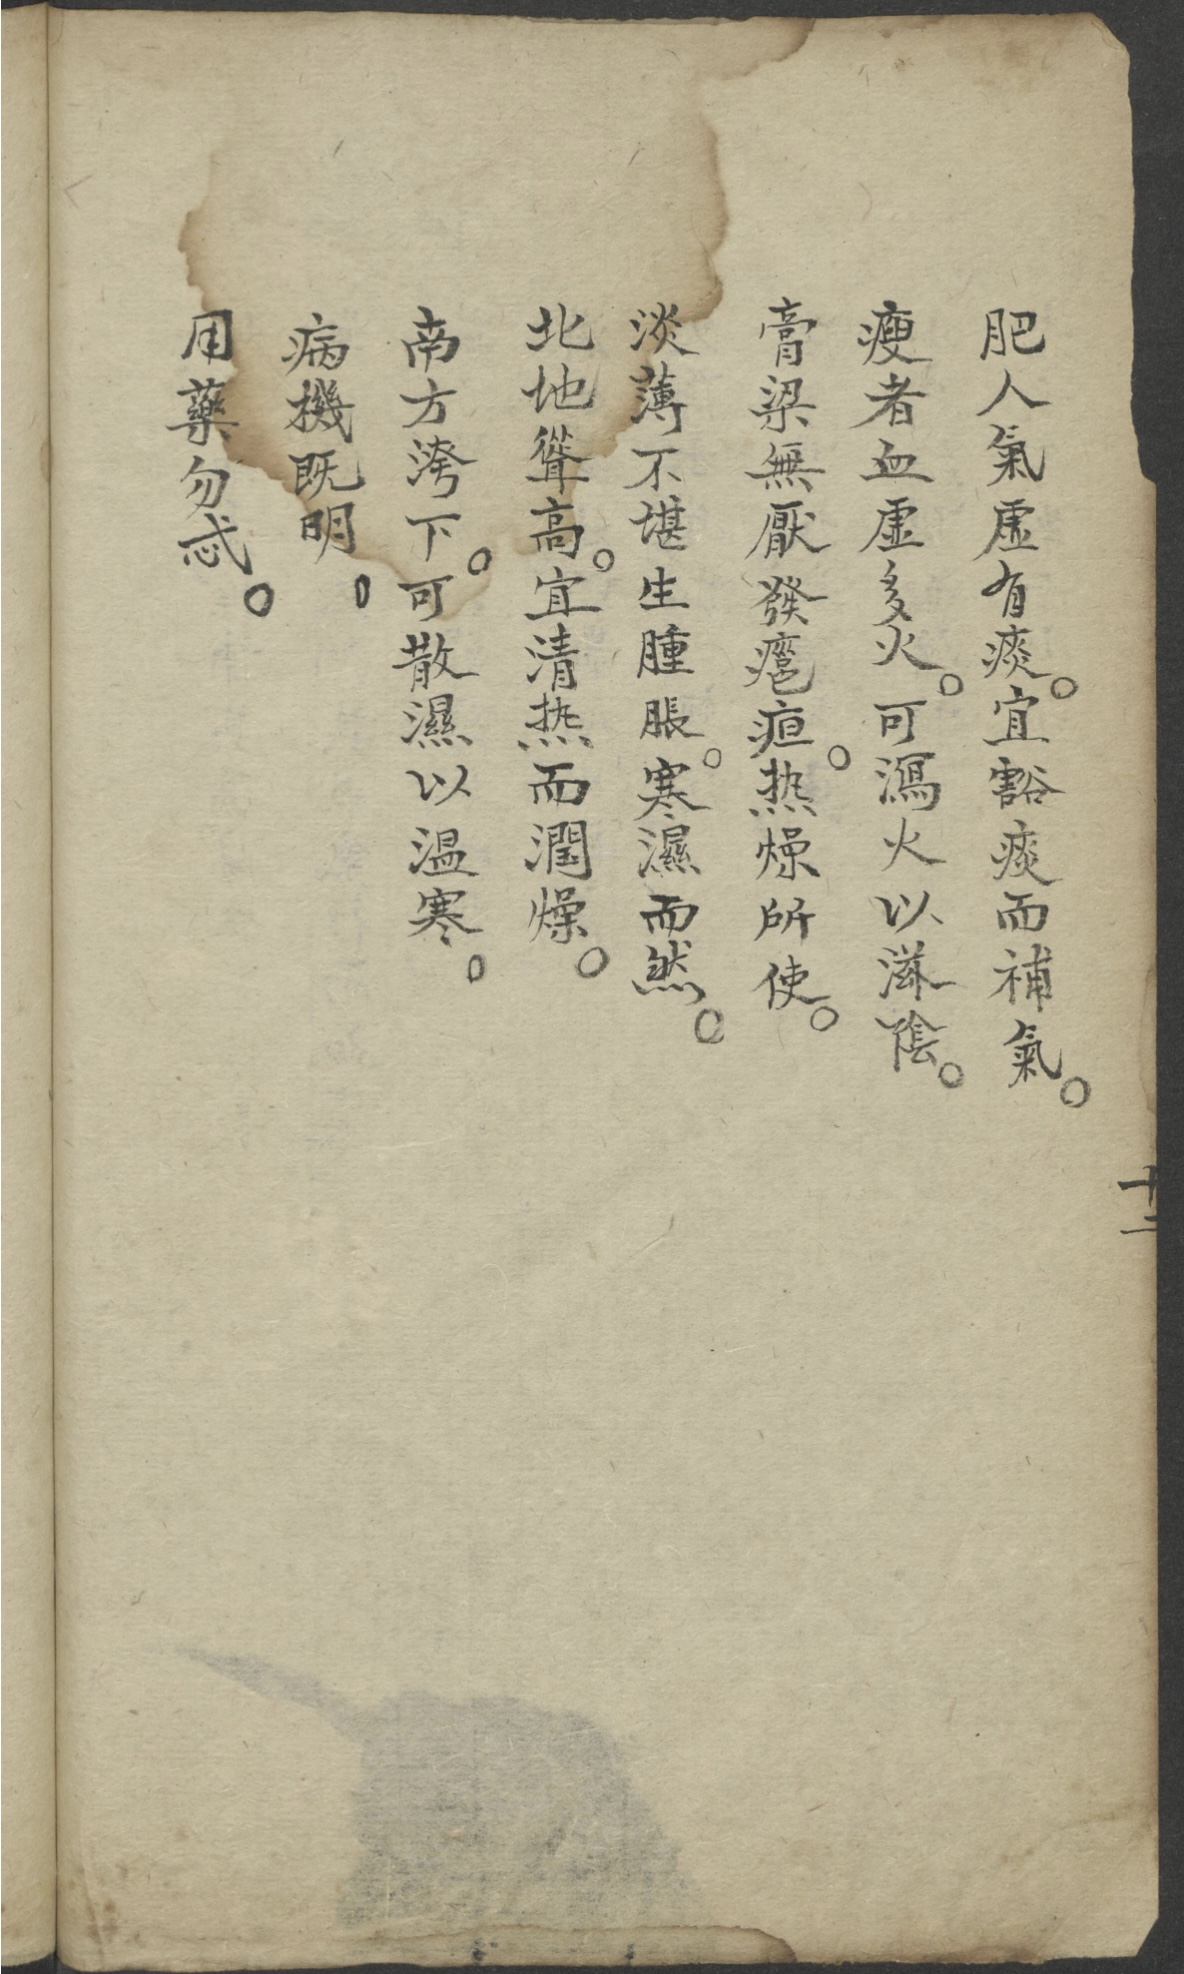 肥人氣虛有痰。宜豁痰而補氣。
瘦者血虛多火。可瀉火以滋陰。
膏粱無厭發瘡疽。热燥所使。
淡薄不堪生腫脹。寒濕而然。
北地聳高。宜清热而潤燥。
南方洿下。可散濕以温寒。
病機既明。
用藥勿忒。
十二